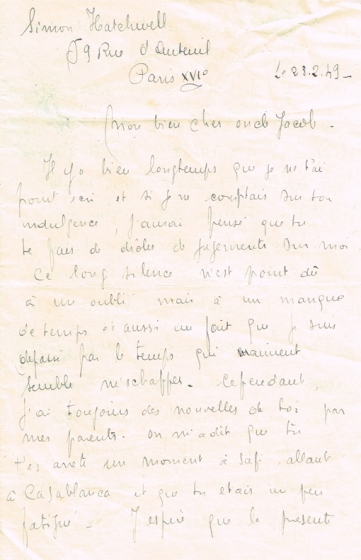 Simon Hatchwell
59 Rue d'Auteuil
Paris XVIe
Le 23.2.49_
Mon bien cher oncle Jacob.
Il y a bien longtemps que je ne t'ai
point écrit et si je ne comptais sur ton
indulgence, j'aurai pensé que tu
te fais de drôles de jugements sur moi
Ce long silence n'est point dû
à un oubli mais à un manque
de temps et aussi au fait que je suis
dépassé par le temps qui vraiment
semble m'échapper. Cependant,
j'ai toujours des nouvelles de toi par
mes parents. on m'a dit que tu
t'es arrêté un moment à Safi allant
à Casablanca et que tu etais un peu
fatigué_ J'espère que la présente